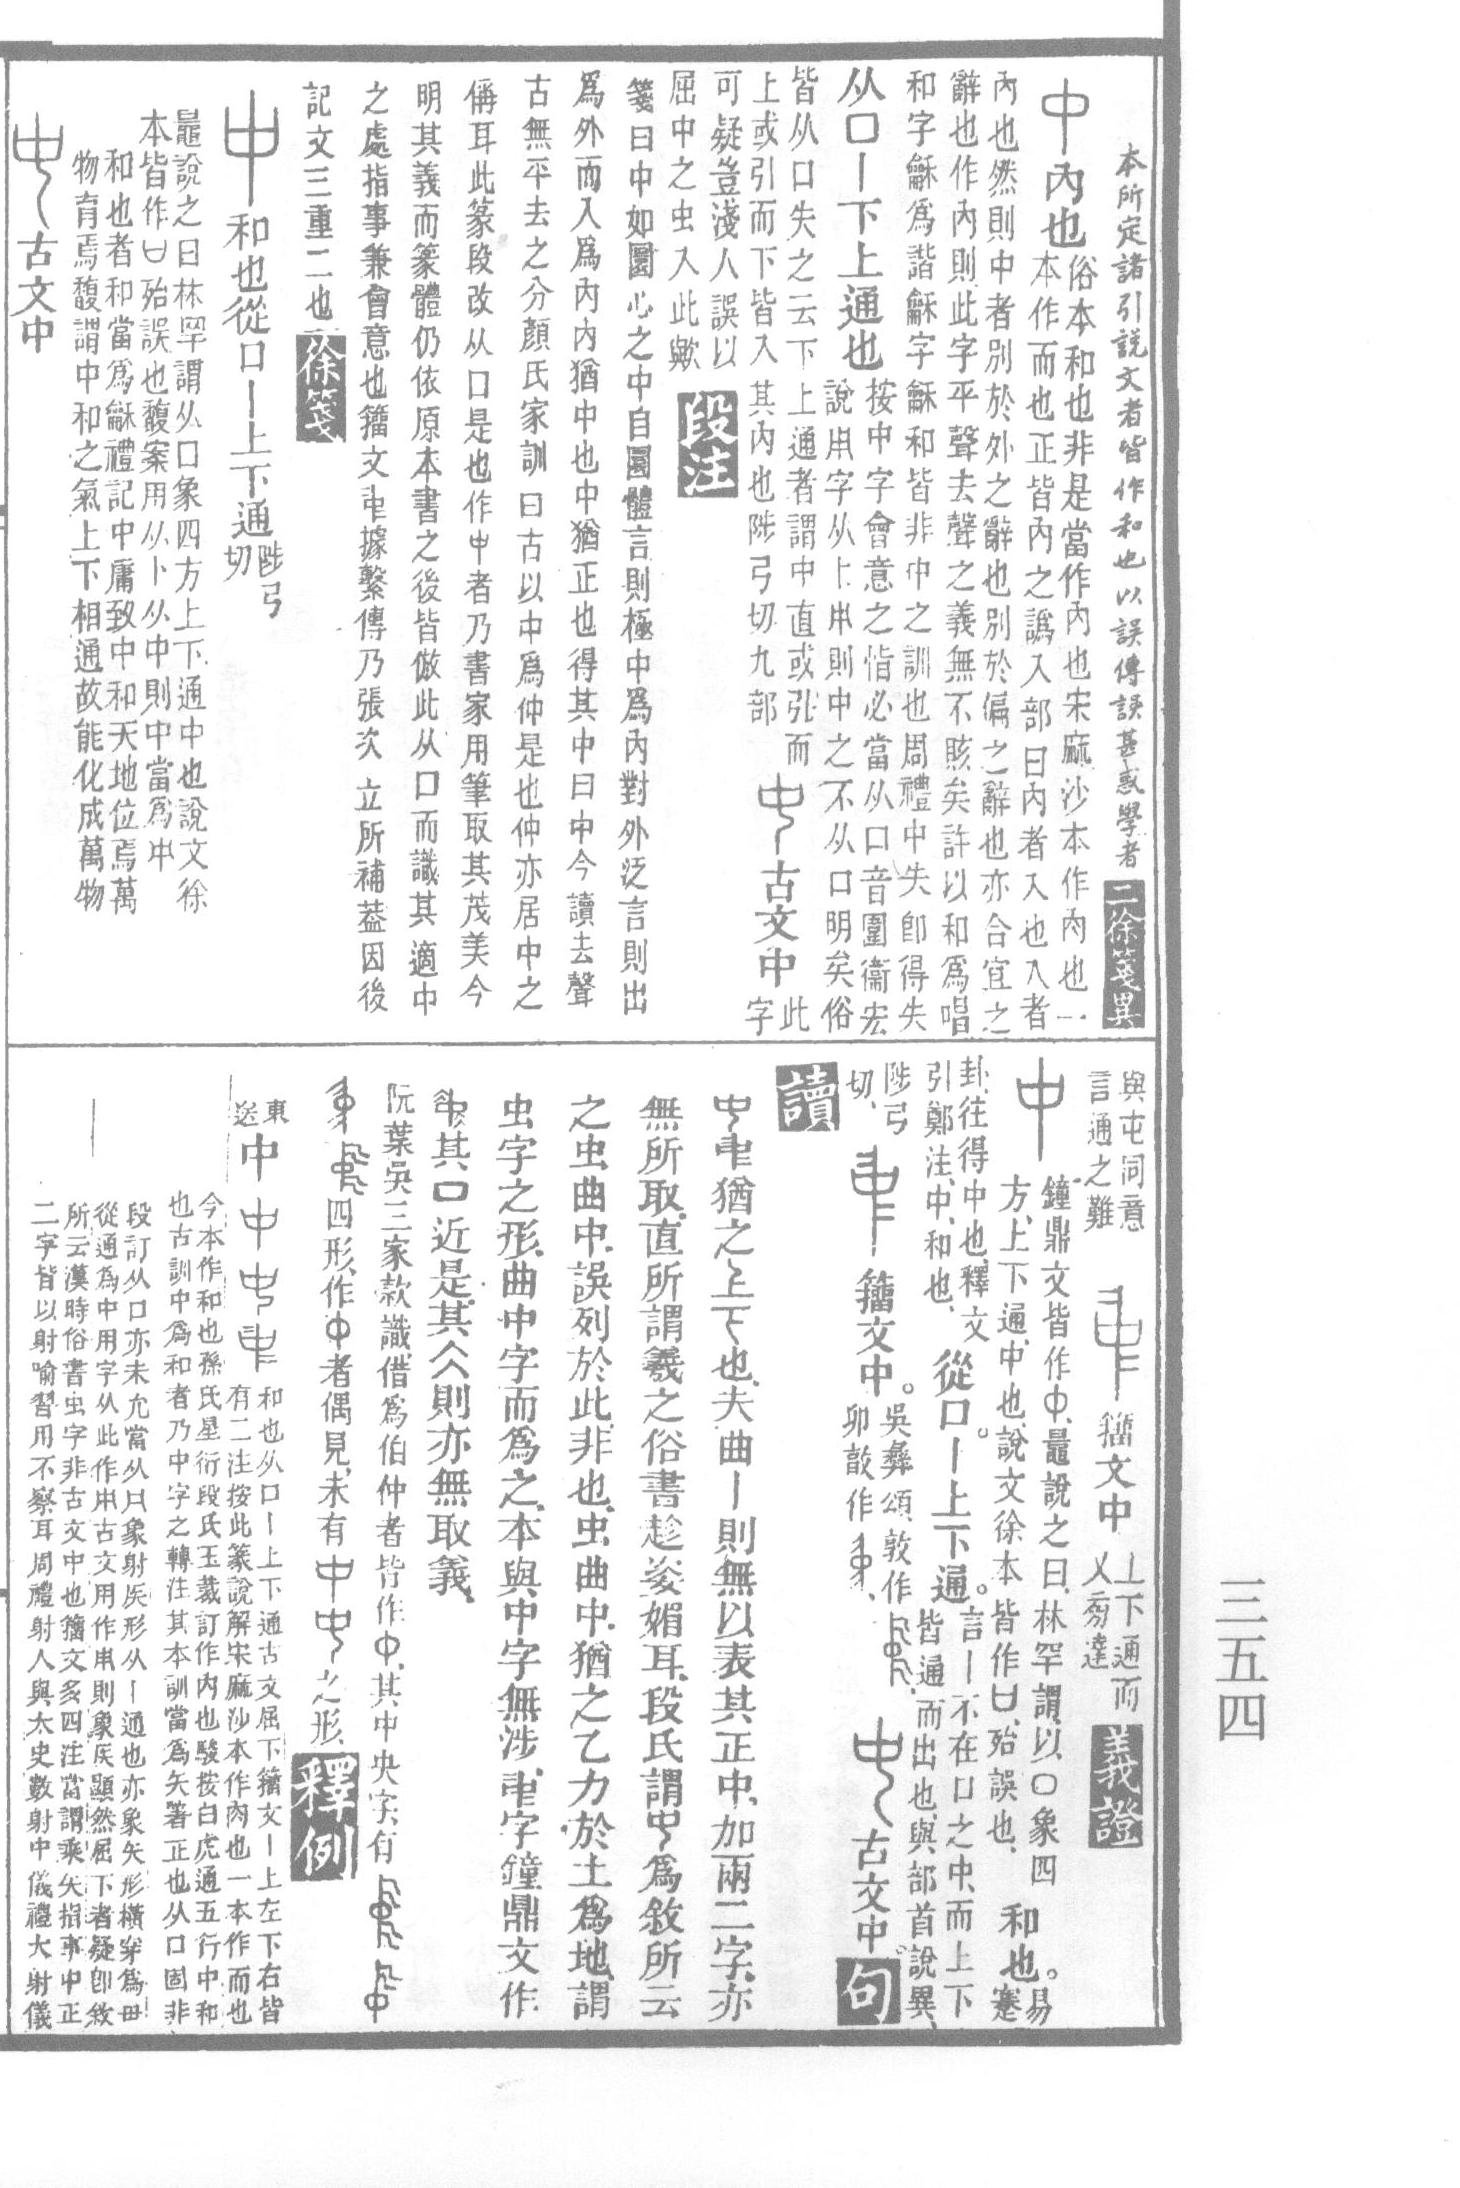 本所定諸引說文者皆作和也以誤傳誤甚惑學者 二徐箋異
中 內也 俗本和也非是當作內也宋麻沙本作內也一
本作而也正皆內之譌入部曰內者入也入者
內也然則中者別於外之辭也別於偏之辭也亦合宜之
辭也作內則此字平聲去聲之義無不賅矣許以和爲唱
和字龢爲諧龢字龢和皆非中之訓也周禮中失卽得失
从口丨下上通也 按中字會意之恉必當从口音圍衞宏
說用字从卜中則中之不从口明矣俗
皆从口失之云下上通者謂中直或引而
上或引而下皆入其內也陟弓切九部
古文中 此字
可疑豈淺人誤以
屈中之虫入此歟 段注
箋曰中如圜心之中自圜體言則極中爲內對外泛言則出
爲外而入爲內內猶中也中猶正也得其中曰中今讀去聲
古無平去之分顏氏家訓曰古以中爲仲是也仲亦居中之
偁耳此篆段改从口是也作中者乃書家用筆取其茂美今
明其義而篆體仍依原本書之後皆倣此从口而識其適中
之處指事兼會意也籒文據繫傳乃張次立所補葢因後
記文三重二也 徐箋
中 和也從口丨上下通 陟弓切
鼂說之曰林罕謂从口象四方上下通中也說文徐
本皆作殆誤也馥案用从卜从中則中當爲中
和也者和當爲龢禮記中庸致中和天地位焉萬
物育焉馥謂中和之氣上下相通故能化成萬物
古文中
與屯同意
言通之難
籒文中 上下通而
乂㫄達 義證
中 鐘鼎文皆作中、鼂說之曰、林罕謂、以口象四
方、上下通、中也、說文徐本皆作、殆誤也、
和也。易蹇
卦、往得中也、釋文
引鄭注、中、和也、
從口。丨上下通。 言丨不在口之中、而上下
皆通、而出也、與部首說異、
陟弓
切、
籒文中。 吳彝頌敦作
卯敲作
古文中 句
讀
猶之上下也、夫曲丨則無以表其正中、加兩二字、亦
無所取、直所謂羲之俗書趁姿媚耳、段氏謂爲敘所云
之虫曲中、誤列於此、非也、虫曲中、猶之乙力於土爲地、謂
虫字之形、曲中字而爲之、本與中字無涉、字鐘鼎文作
其口近是、其則亦無取義、
阮葉吳三家款識、借爲伯仲者皆作中、其中央字、有
四形、作中者偶見、未有之形、 釋例
東送 中 和也从口丨上下通古文屈下籒文丨上左下右皆
有二注按此篆說解宋麻沙本作內也一本作而也
今本作和也孫氏星衍段氏玉裁訂作內也駿按白虎通五行中和
也古訓中爲和者乃中字之轉注其本訓當爲矢箸正也从口固非
段訂从口亦未允當从口象射矦形从丨通也亦象矢形橫穿爲毌
從通爲中用字从此作用古文用作用則象矦顯然屈下者疑卽敘
所云漢時俗書虫字非古文中也籒文多四注當謂乘矢指事中正
二字皆以射喻習用不察耳周禮射人與太史數射中儀禮大射儀
三五四